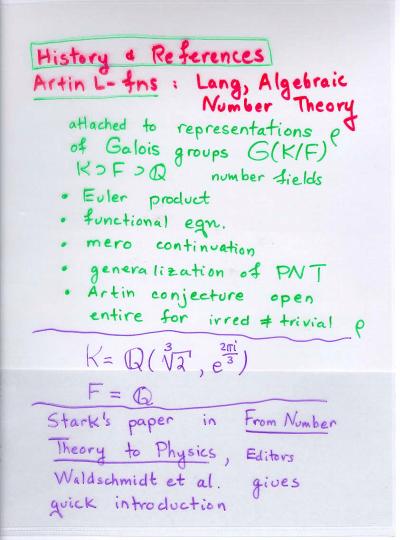 History & References
Artin L-fns : Lang, Algebraic
Number Theory
attached to representations ρ
of Galois groups G(K/F)
K⊃F⊃Q number fields
• Euler product
• functional eqn.
• mero continuation
• generalization of PNT
• Artin conjecture open
entire for irred ≠ trivial ρ
K = Q(∛2, e^{2πi/3})
F = Q
Stark's paper in From Number
Theory to Physics, Editors
Waldschmidt et al. gives
quick introduction